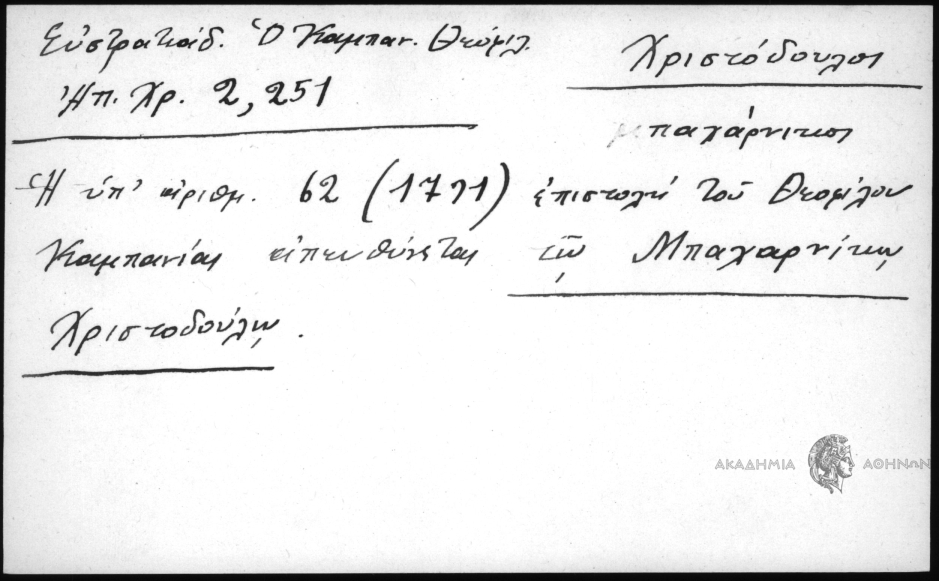 Εὐστρατιάδ. Ὁ Καμπαν. Θεόφιλ.
Ἠπ. Χρ. 2, 251
Χριστόδουλος
μπαχάρνικος
Ἡ ὑπ' ἀριθμ. 62 (1791) ἐπιστολὴ τοῦ Θεοφίλου
Καμπανίας ἀπευθύνεται τῷ Μπαχαρνίκῳ
Χριστοδούλῳ.
ΑΚΑΔΗΜΙΑ ΑΘΗΝΩΝ